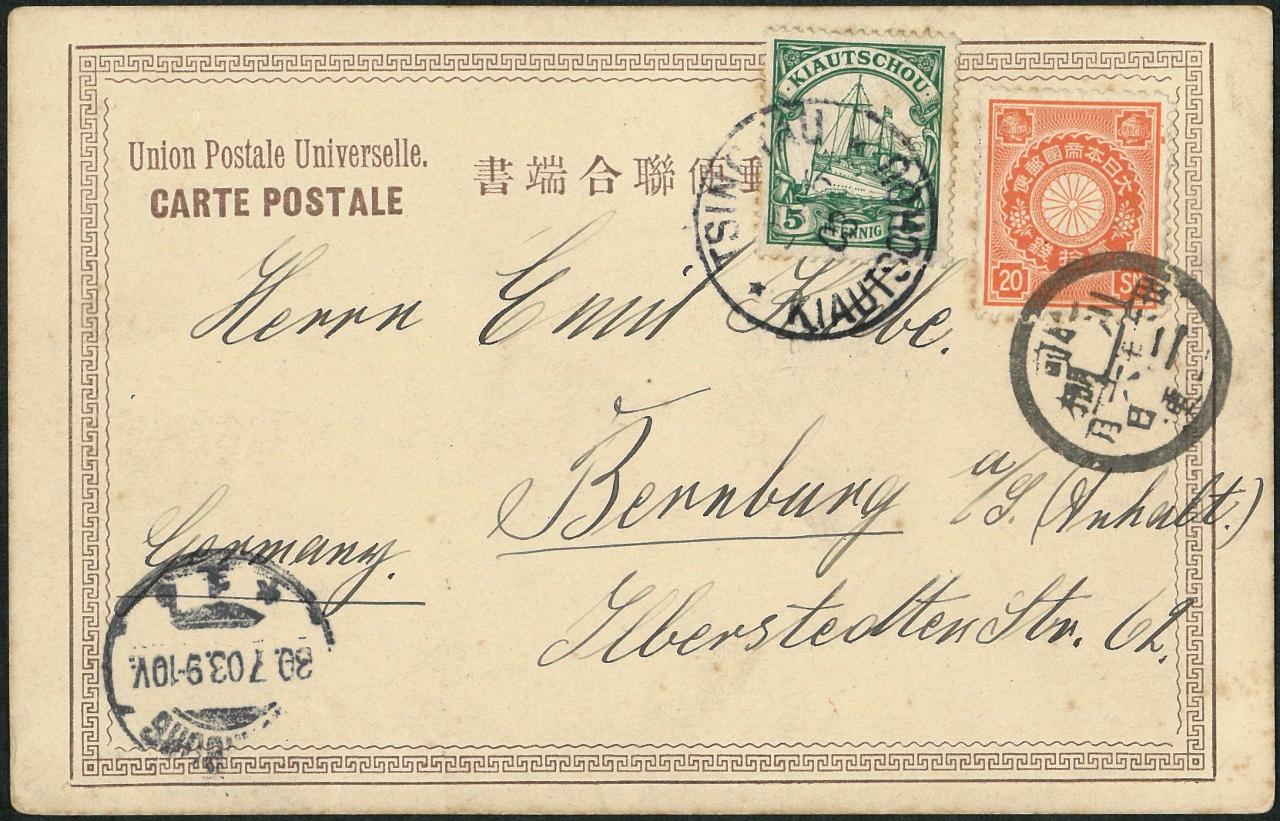 Union Postale Universelle.
CARTE POSTALE
書端合聯便郵
KIAUTSCHOU
5 PFENNIG
大日本帝國郵便
貳拾錢
20 SN
TSINGTAU
* KIAUTSCHOU
月 日
Herrn Emil
Bernburg a/S. (Anhalt.)
Ilberstedter Str. 62.
Germany.
30.7.03.9-10V.